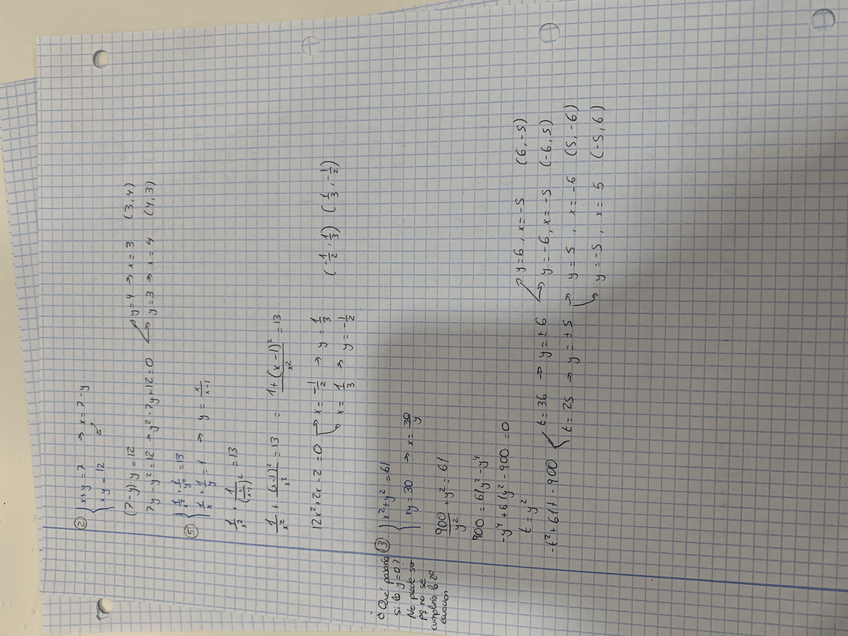 ② { x+y=7 → x=7-y
xy=12
(7-y)y=12
7y-y²=12 → y²-7y+12=0 → y=4 → x=3 (3,4)
→ y=3 → x=4 (4,3)
⑤ { 1/x² + 1/y² = 13
1/x + 1/y = 1 → y = x/(x-1)
1/x² + 1/(x/(x-1))² = 13
1/x² + (x-1)²/x² = 13 = 1+(x-1)²/x² = 13
12x²+2x-2=0 → x = -1/2 → y = 1/3 (-1/2, 1/3) (1/3, -1/2)
x = 1/3 → y = -1/2
¿Qué pasaría si la y=0?
No puede ser
pq no se
cumpliría la 2ª
ecuación
③ { x²+y²=61
xy=30 → x=30/y
900/y² + y² = 61
900=61y²-y⁴
-y⁴+61y²-900=0
t=y²
-t²+61t-900 t=36 → y=±6 → y=6, x=-5 (6,-5)
→ y=-6, x=-5 (-6,5)
t=25 → y=±5 → y=5, x=-6 (5,-6)
y=-5, x=5 (-5,6)